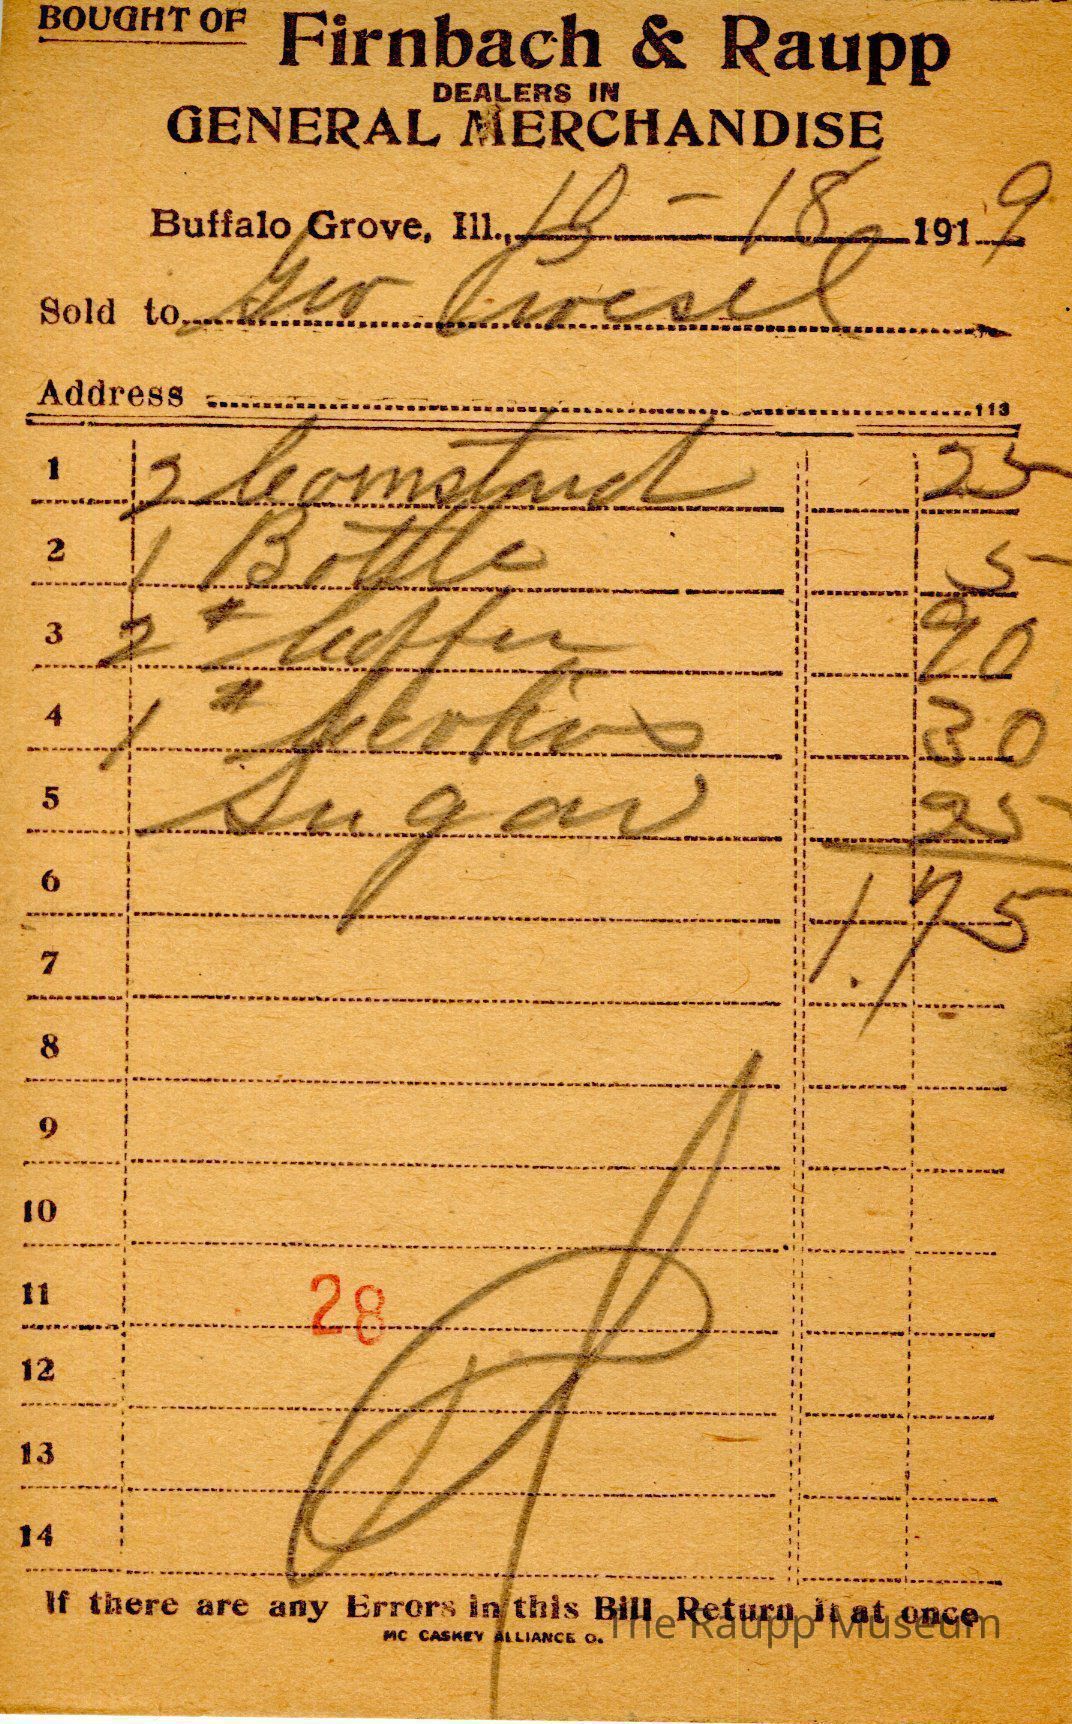 BOUGHT OF Firnbach & Raupp
DEALERS IN
GENERAL MERCHANDISE
Buffalo Grove, Ill., 10 - 18 1919
Sold to Geo
Address 113
1 2 Cornstarch 25
2 1 Bottle 5
3 2 # Coffee 90
4 1 # Cookies 30
5 Sugar 25
6 1.75
7
8
9
10
11 28
12
13
14
If there are any Errors in this Bill Return it at once
MC CASKEY ALLIANCE O.
The Raupp Museum